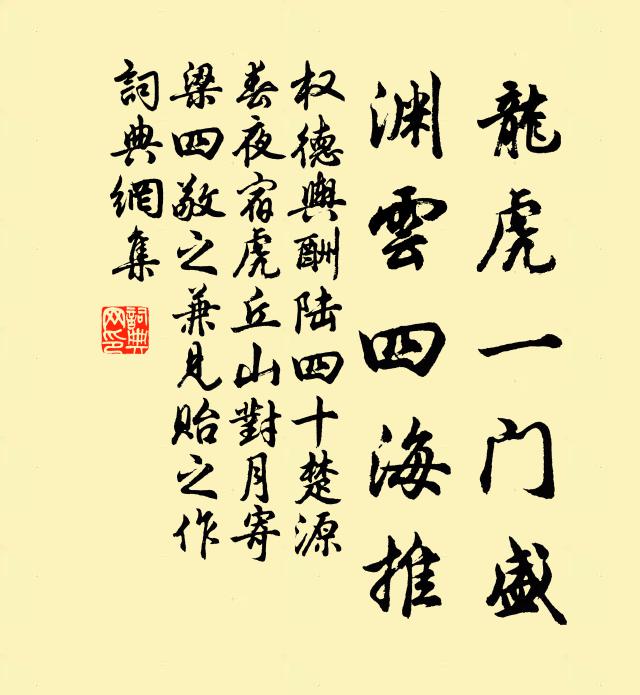 龍虎一门盛
渊雲四海推
权德輿酬陆四十楚源
春夜宿虎丘山對月寄
梁四敬之兼見贻之作
詞典網集
詞典
网印